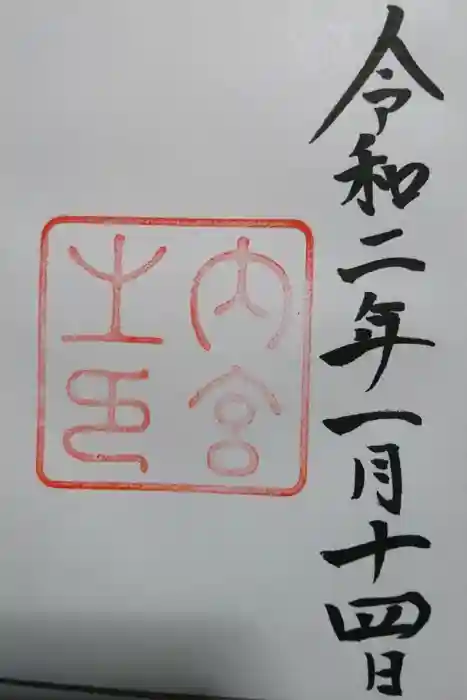 令和二年一月十四日
内宮之印